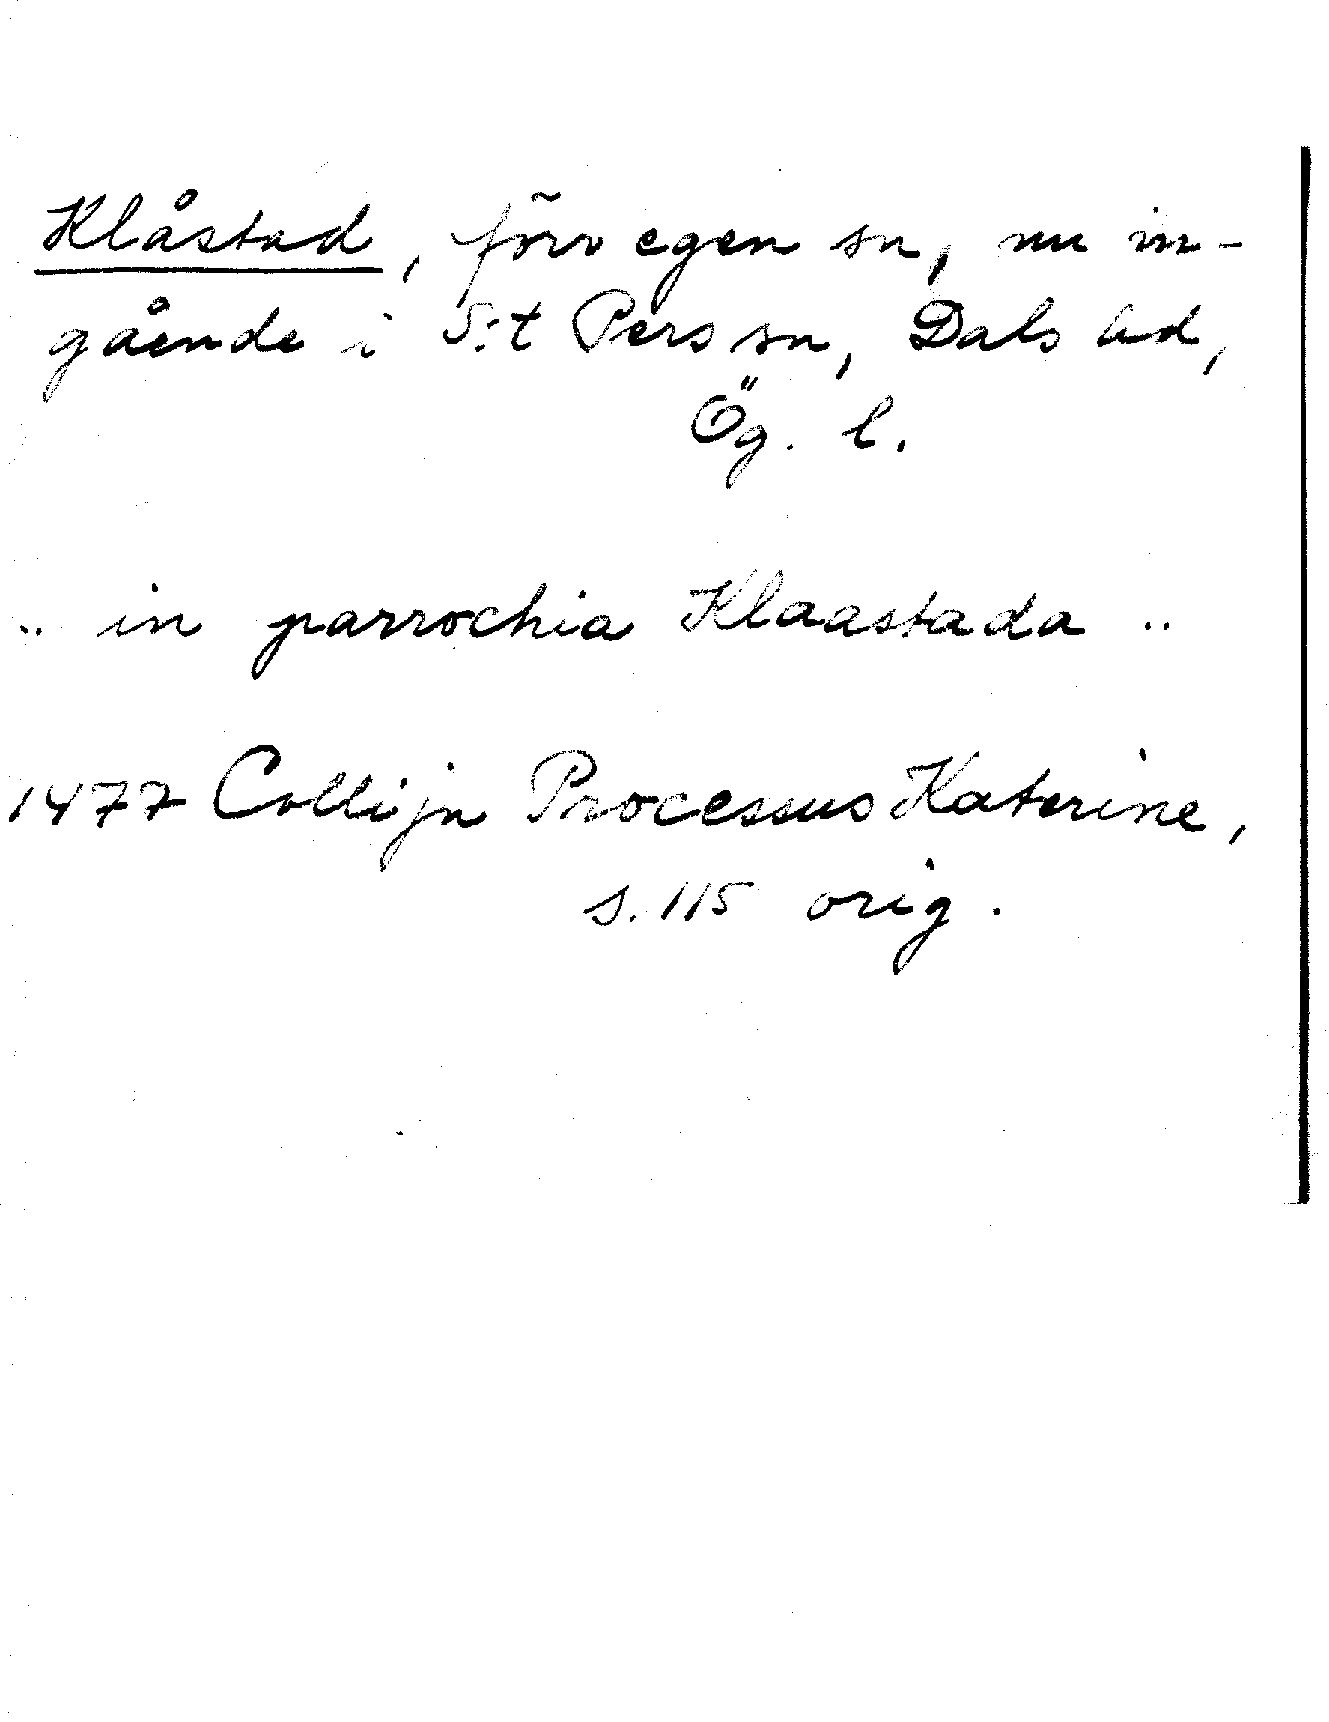 Klåstad, förr egen sn, nu in-
gående i S:t Pers sn, Dals hd,
Ög. l.
.. in parrochia Klaastada ..
1477 Collijn Processus Katerine,
s. 115 orig.